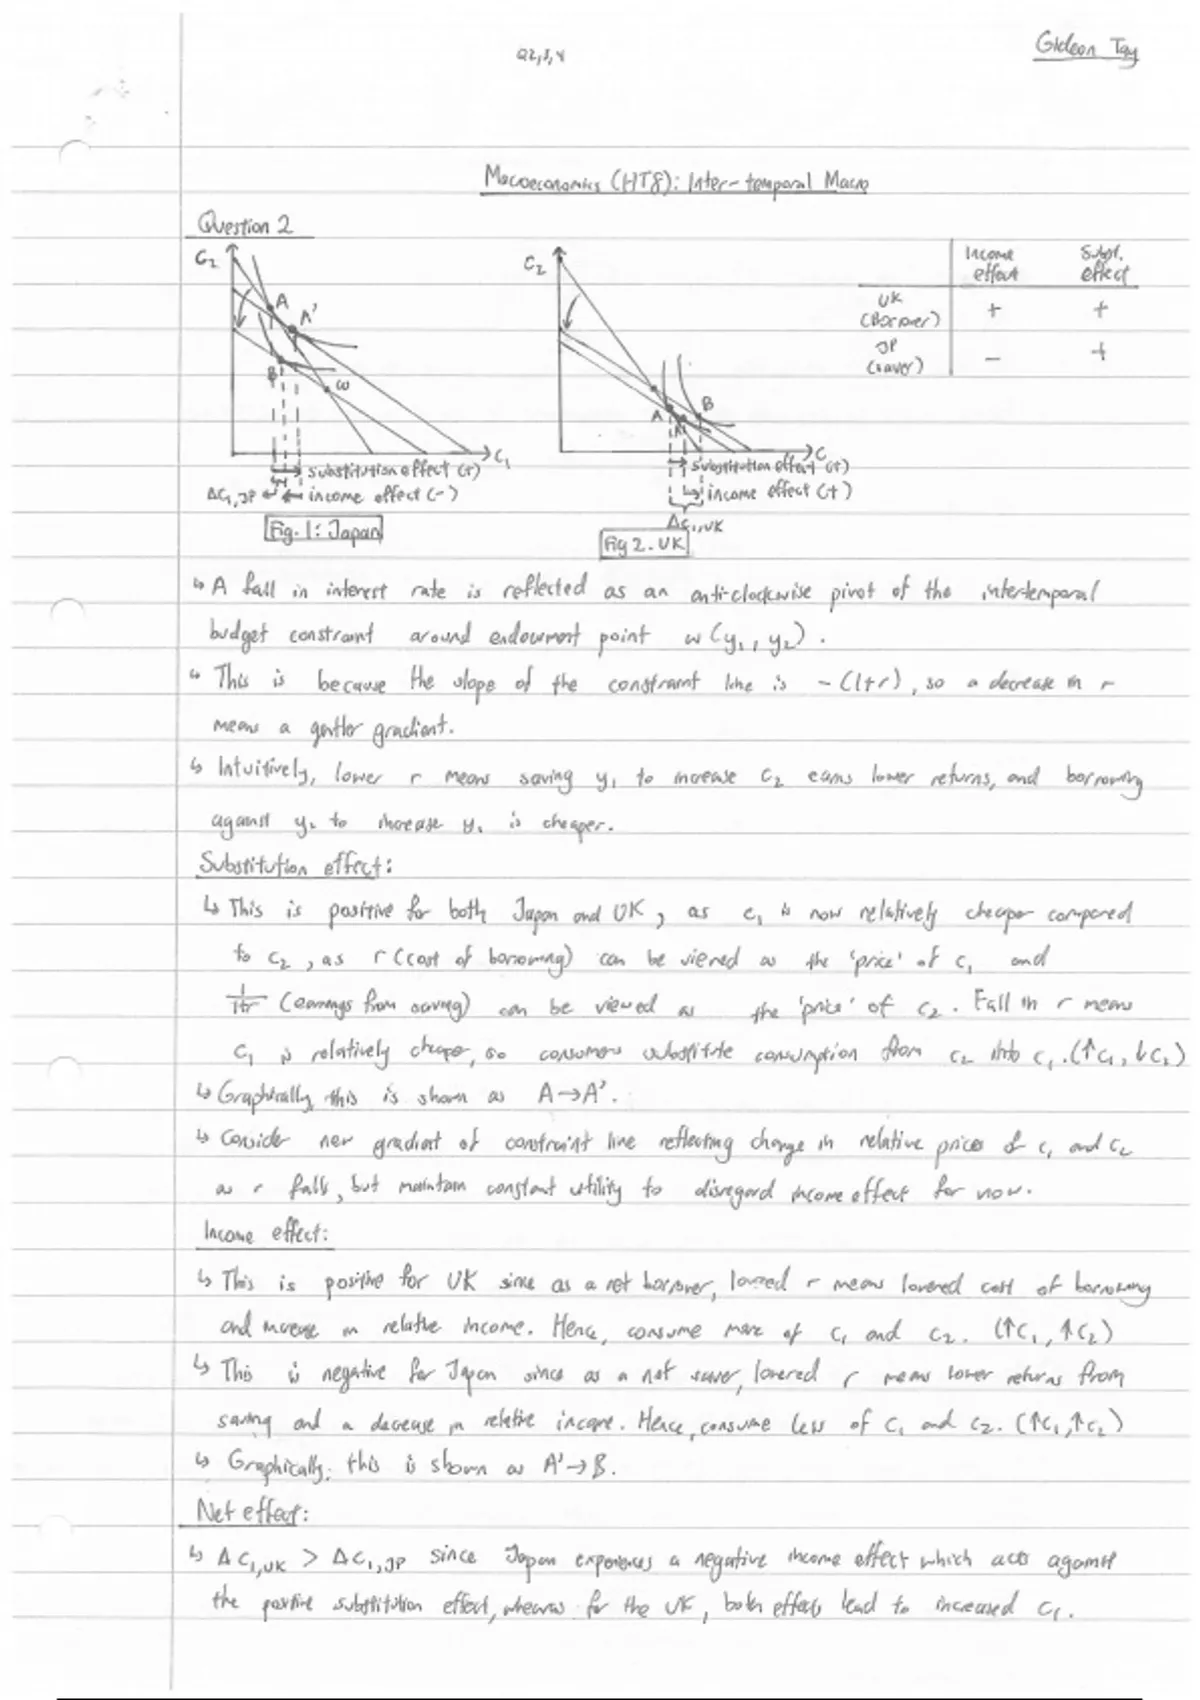 Q2,3,4
Gideon Tay
Macroeconomics (HT8): Inter-temporal Macro
Question 2
C₂
A
A'
B
ω
C₁
substitution effect (+)
ΔC₁,JP income effect (-)
Fig. 1: Japan
C₂
A
A'
B
C₁
substitution effect (+)
income effect (+)
ΔC₁,UK
Fig 2. UK
Income effect Subst. effect
UK (Borrower) + +
JP (saver) - +
↳ A fall in interest rate is reflected as an anti-clockwise pivot of the intertemporal
budget constraint around endowment point ω (y₁, y₂).
↳ This is because the slope of the constraint line is -(1+r), so a decrease in r
means a gentler gradient.
↳ Intuitively, lower r means saving y₁ to increase C₂ earns lower returns, and borrowing
against y₂ to increase y₁ is cheaper.
Substitution effect:
↳ This is positive for both Japan and UK, as c₁ is now relatively cheaper compared
to c₂, as r (cost of borrowing) can be viewed as the 'price' of c₁ and
1/1+r (earnings from saving) can be viewed as the 'price' of c₂. Fall in r means
c₁ is relatively cheaper, so consumers substitute consumption from c₂ into c₁. (↑c₁, ↓c₂)
↳ Graphically, this is shown as A→A'.
↳ Consider new gradient of constraint line reflecting change in relative prices of c₁ and c₂
as r falls, but maintain constant utility to disregard income effect for now.
Income effect:
↳ This is positive for UK since as a net borrower, lowered r means lowered cost of borrowing
and increase in relative income. Hence, consume more of c₁ and c₂. (↑c₁, ↑c₂)
↳ This is negative for Japan since as a net saver, lowered r means lower returns from
saving and a decrease in relative income. Hence, consume less of c₁ and c₂. (↑c₁, ↑c₂)
↳ Graphically, this is shown as A'→B.
Net effect:
↳ ΔC₁,UK > ΔC₁,JP since Japan experiences a negative income effect which acts against
the positive substitution effect, whereas for the UK, both effects lead to increased c₁.